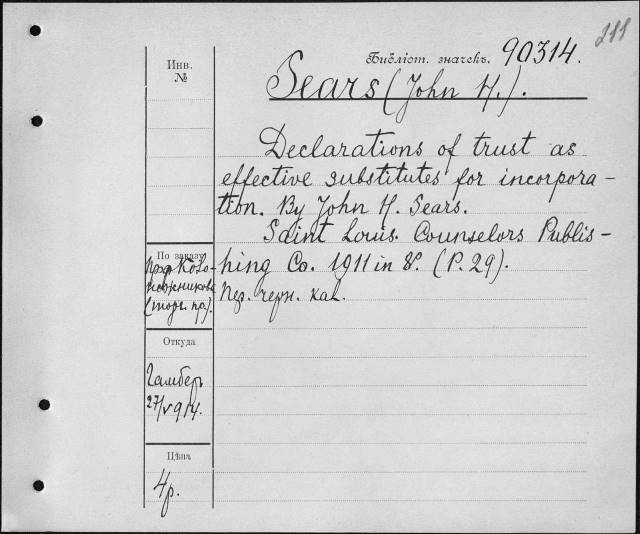 111
Библіот. значекъ. 90314.
Sears (John H.).
Инв.
№
Declarations of trust as
effective substitutes for incorpora-
tion. By John H. Sears.
Saint Louis. Counselors Publis-
hing Co. 1911 in 8º. (P. 29).
Пер. черн. кал.
По заказу
Проф.
(торг. пр.).
Откуда
Гамбер
27/V 914.
Цѣна
4р.